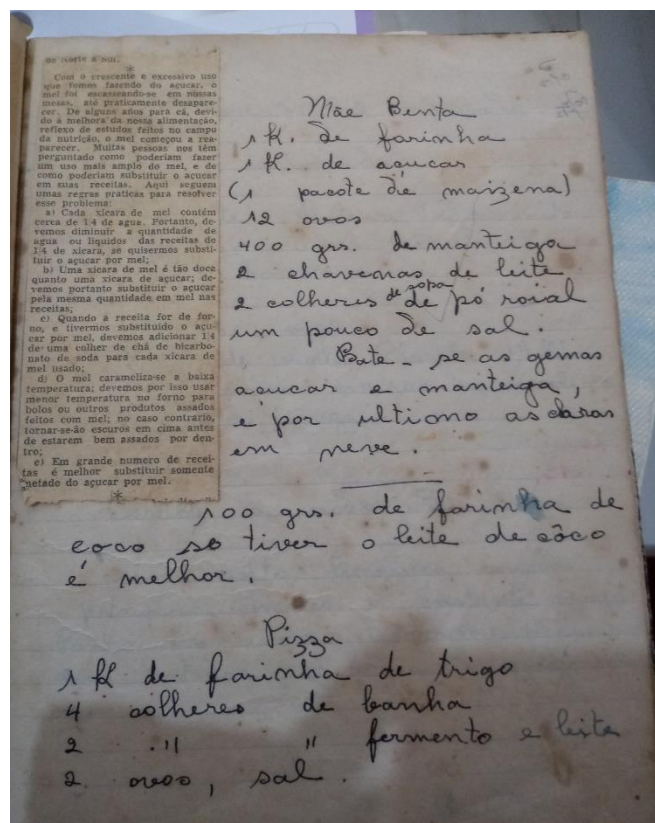 de Norte a Sul.
*
Com o crescente e excessivo uso
que fomos fazendo do açucar, o
mel foi escasseando-se em nossas
mesas, até praticamente desapare-
cer. De alguns años para cá, devi-
do à melhora da nossa alimentação,
reflexo de estudos feitos no campo
da nutrição, o mel começou a rea-
parecer. Muitas pessoas nos têm
perguntado como poderiam fazer
um uso mais amplo do mel, e de
como poderiam substituir o açucar
em suas receitas. Aqui seguem
umas regras praticas para resolver
esse problema:
a) Cada xicara de mel contém
cerca de 14 de agua. Portanto, de-
vemos diminuir a quantidade de
agua ou liquidos das receitas de
14 de xicara, se quisermos substi-
tuir o açucar por mel;
b) Uma xicara de mel é tão doce
quanto uma xicara de açucar; de-
vemos portanto substituir o açucar
pela mesma quantidade em mel nas
receitas;
c) Quando a receita for de for-
no, e tivermos substituido o açu-
car por mel, devemos adicionar 14
de uma colher de chá de bicarbo-
nato de soda para cada xicara de
mel usado;
d) O mel carameliza-se a baixa
temperatura; devemos por isso usar
menor temperatura no forno para
bolos ou outros produtos assados
feitos com mel; no caso contrario,
tornar-se-ão escuros em cima antes
de estarem bem assados por den-
tro;
e) Em grande numero de recei-
tas é melhor substituir somente
metade do açucar por mel.
*
Mãe Benta
1 K. de farinha
1 K. de açucar
(1 pacote de maizena)
12 ovos
400 grs. de manteiga
2 chavenas de leite
2 colheres de sopa de pó roial
um pouco de sal.
Bate-se as gemas
açucar e manteiga,
e por ultiono as claras
em neve.
100 grs. de farinha de
coco se tiver o leite de côco
é melhor.
Pizza
1 K de farinha de trigo
4 colheres de banha
2 " " fermento e leite
2 ovos, sal.